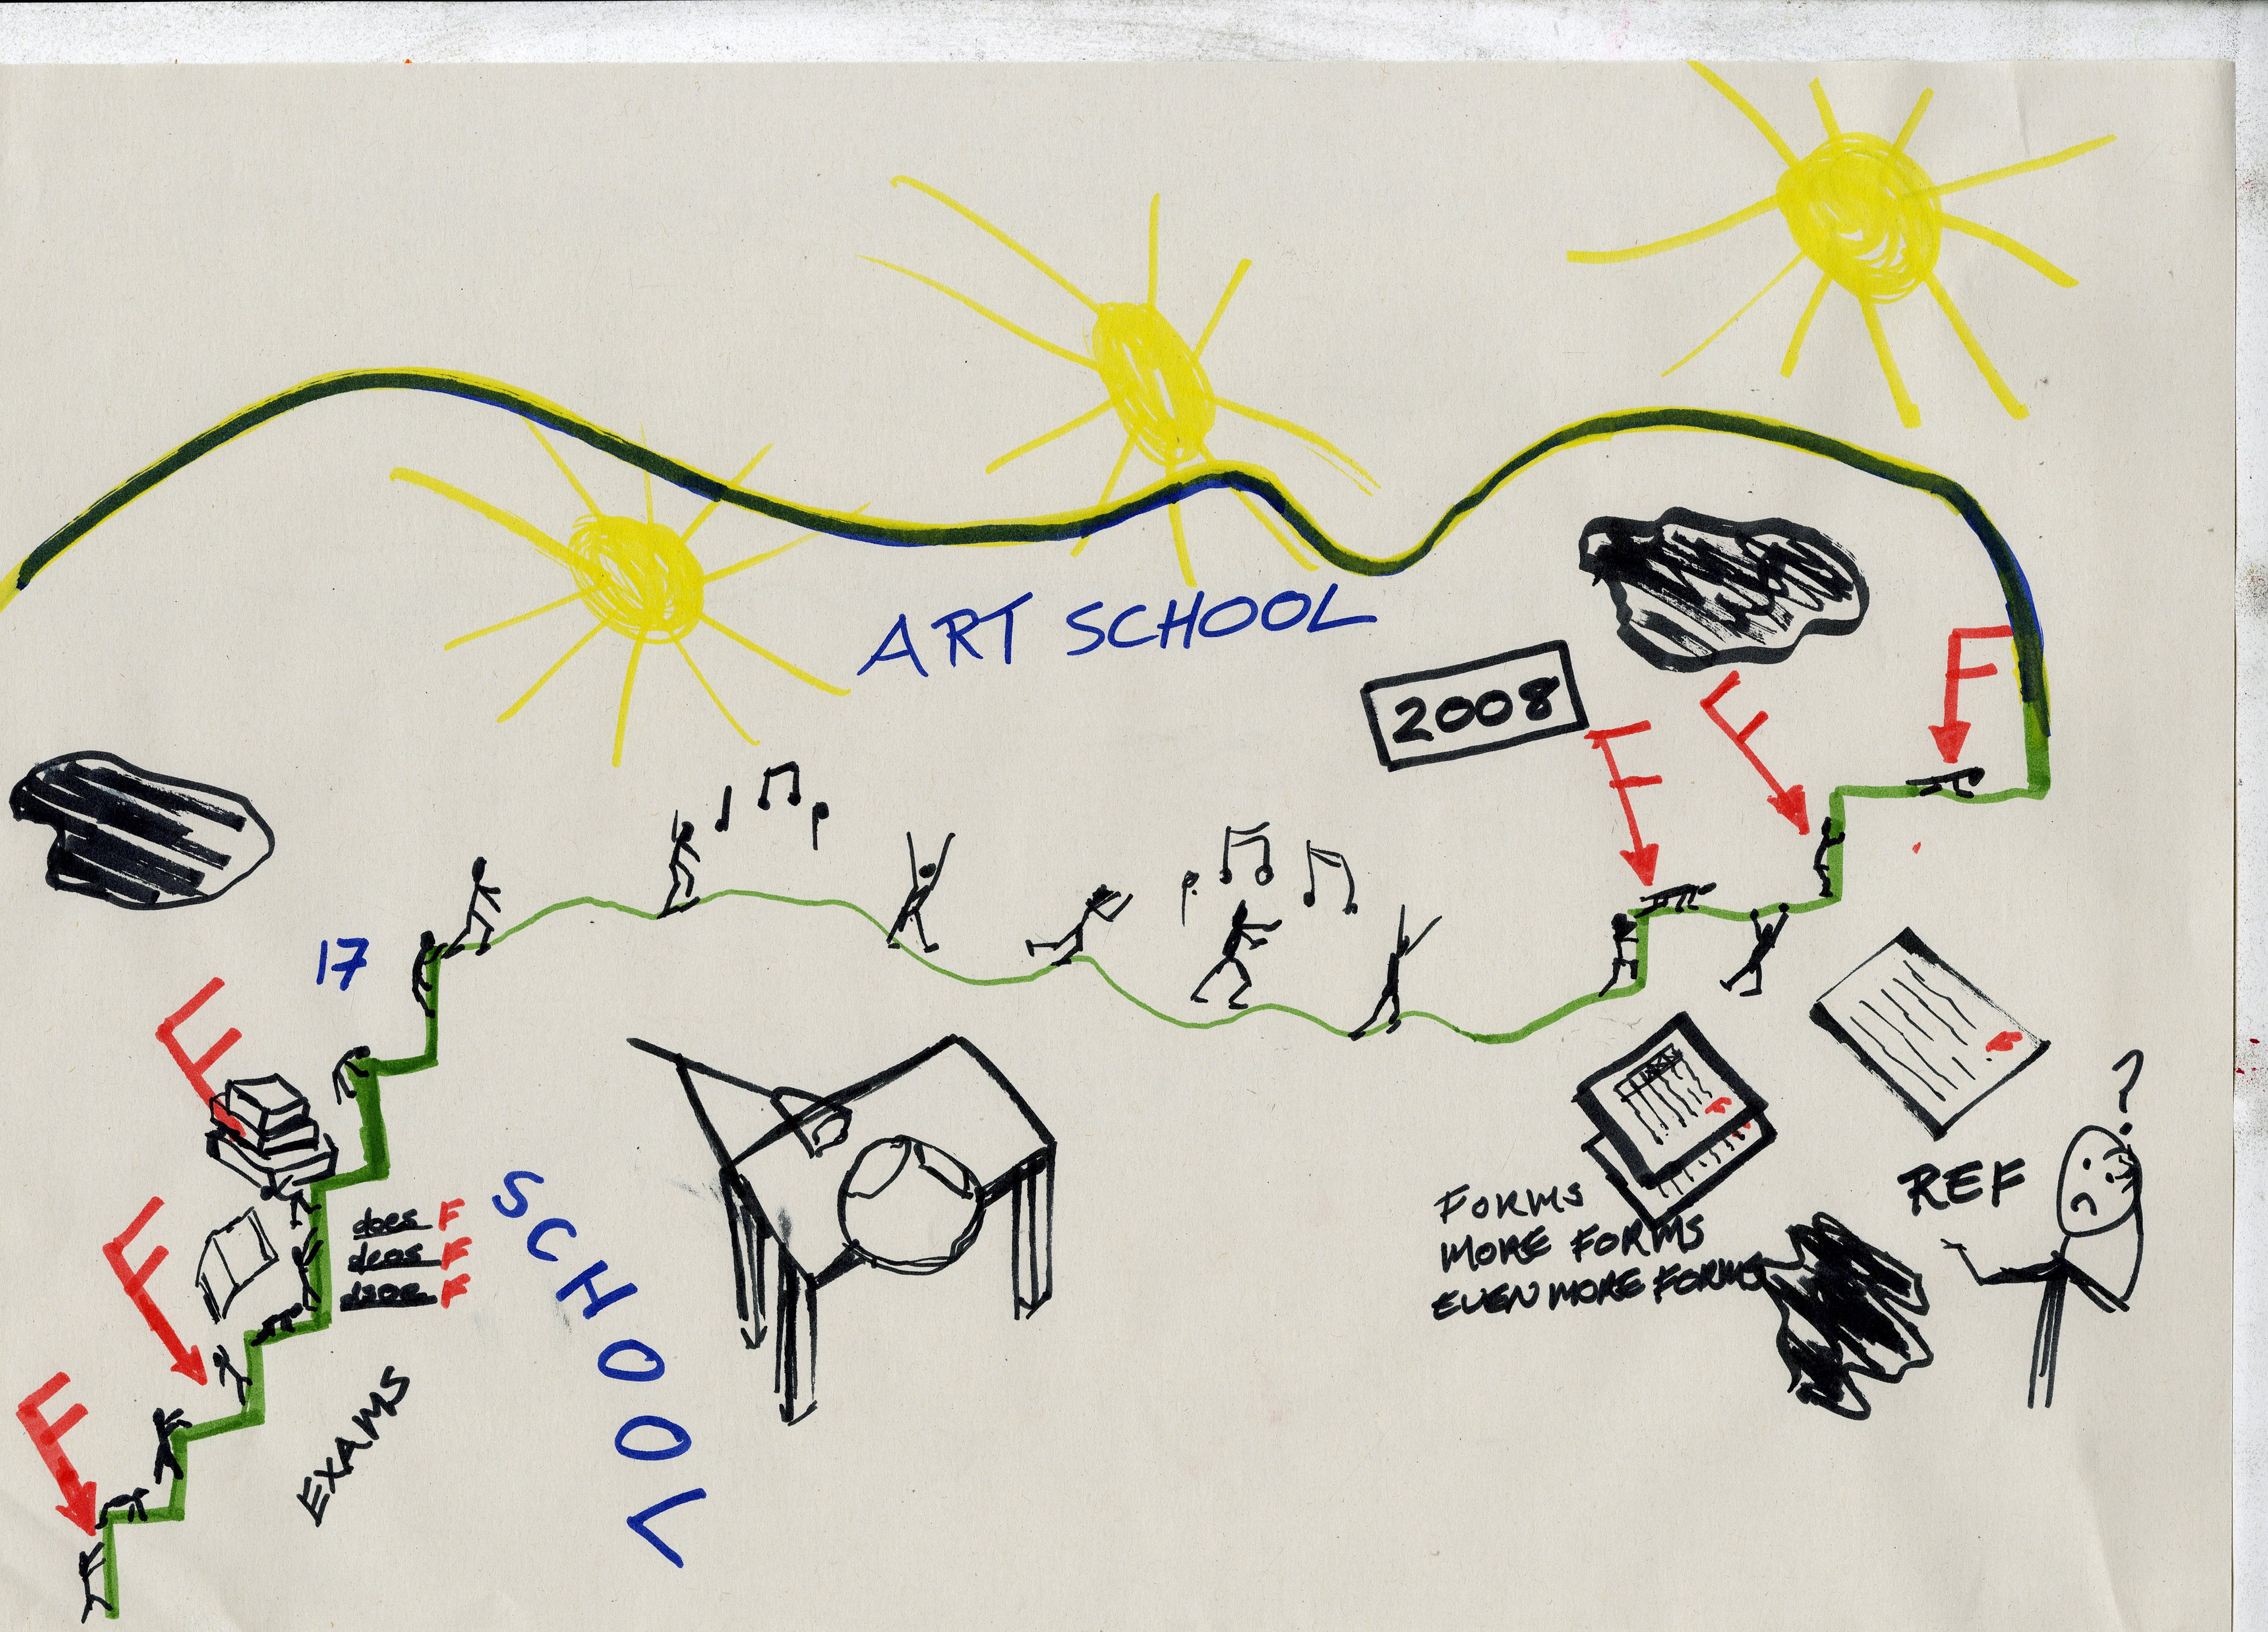 ART SCHOOL
2008
F
F
F
17
F
F
F
does F
deos F
dsoe F
EXAMS
SCHOOL
FORMS
MORE FORMS
EVEN MORE FORMS
REF
?